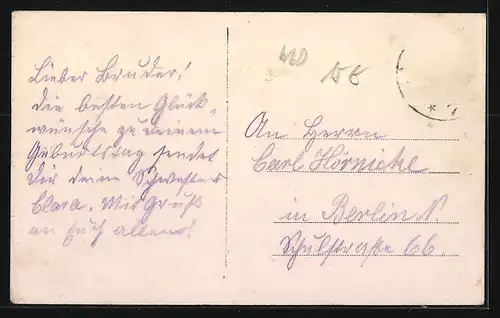 Lieber Bruder!
Die besten Glück-
wünsche zu deinem
Geburtstag sendet
dir deine Schwester
Clara. Mit Gruß
an Euch allen!
An Herrn
Carl Hörnicke
in Berlin N.
Schulstraße 66.